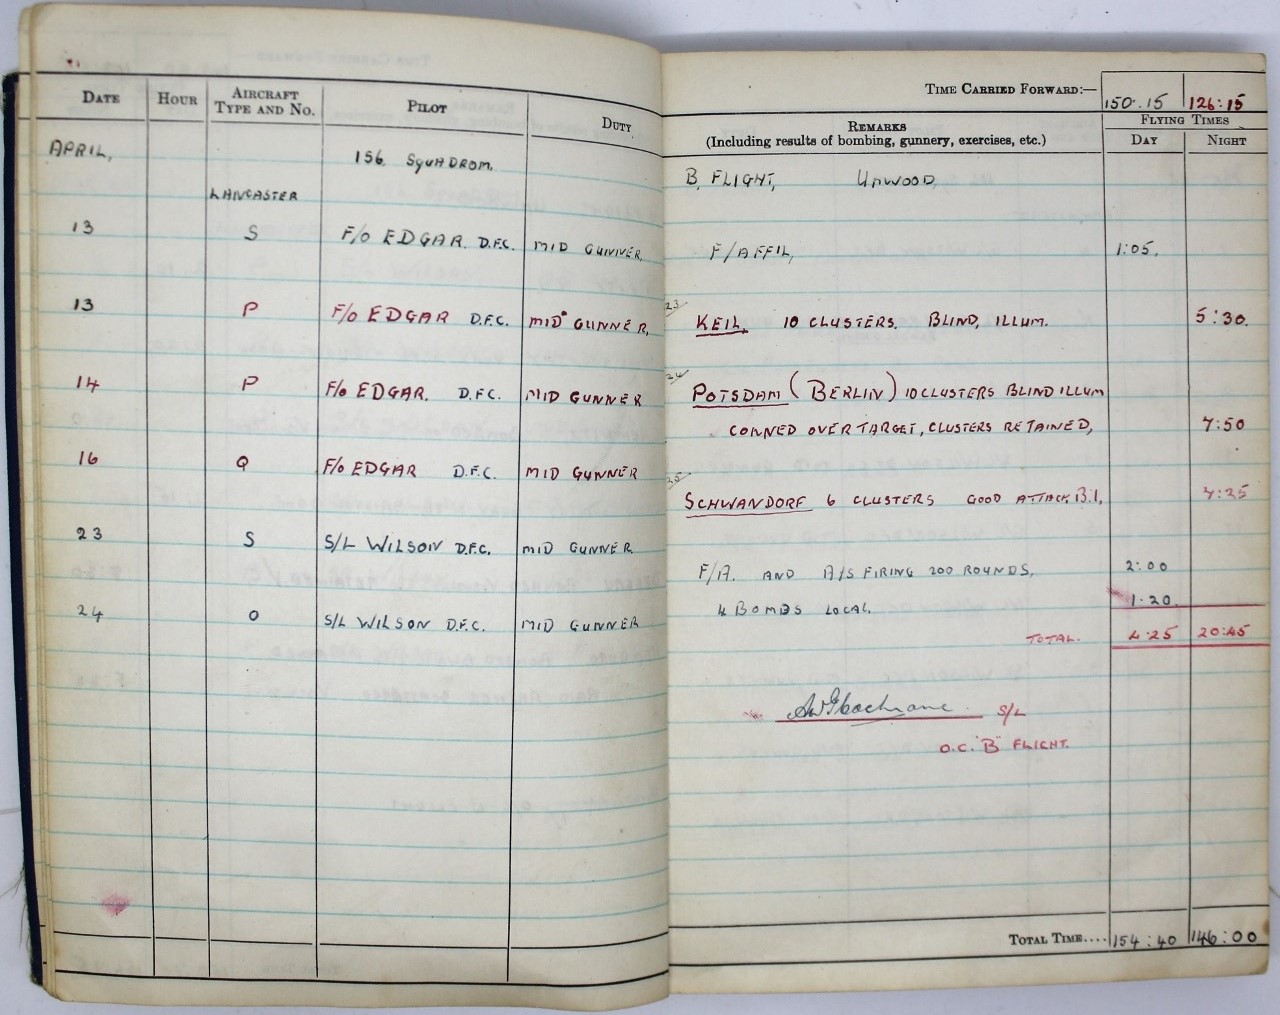 TIME CARRIED FORWARD:— 150.15 126:15
DATE HOUR AIRCRAFT TYPE AND NO. PILOT DUTY REMARKS (Including results of bombing, gunnery, exercises, etc.) FLYING TIMES DAY NIGHT
APRIL, 156 SQUADROM. B, FLIGHT, UPWOOD
LANCASTER
13 S F/O EDGAR. D.F.C. MID GUNNER, F/AFFIL, 1:05.
13 P F/O EDGAR D.F.C. MID GUNNER, 23 KEIL, 10 CLUSTERS. BLIND, ILLUM. 5:30.
14 P F/O EDGAR. D.F.C. MID GUNNER POTSDAM (BERLIN) 10 CLUSTERS BLIND ILLUM
CONNED OVER TARGET, CLUSTERS RETAINED, 7:50
16 Q F/O EDGAR D.F.C. MID GUNNER SCHWANDORF 6 CLUSTERS GOOD ATTACK B.I. 7:25
23 S S/L WILSON D.F.C. MID GUNNER F/A. AND A/S FIRING 200 ROUNDS, 2:00
24 O S/L WILSON D.F.C. MID GUNNER 4 BOMBS LOCAL. 1.20.
TOTAL. 4:25 20:45
Cochrane S/L
O.C. "B" FLIGHT.
TOTAL TIME.... 154:40 146:00